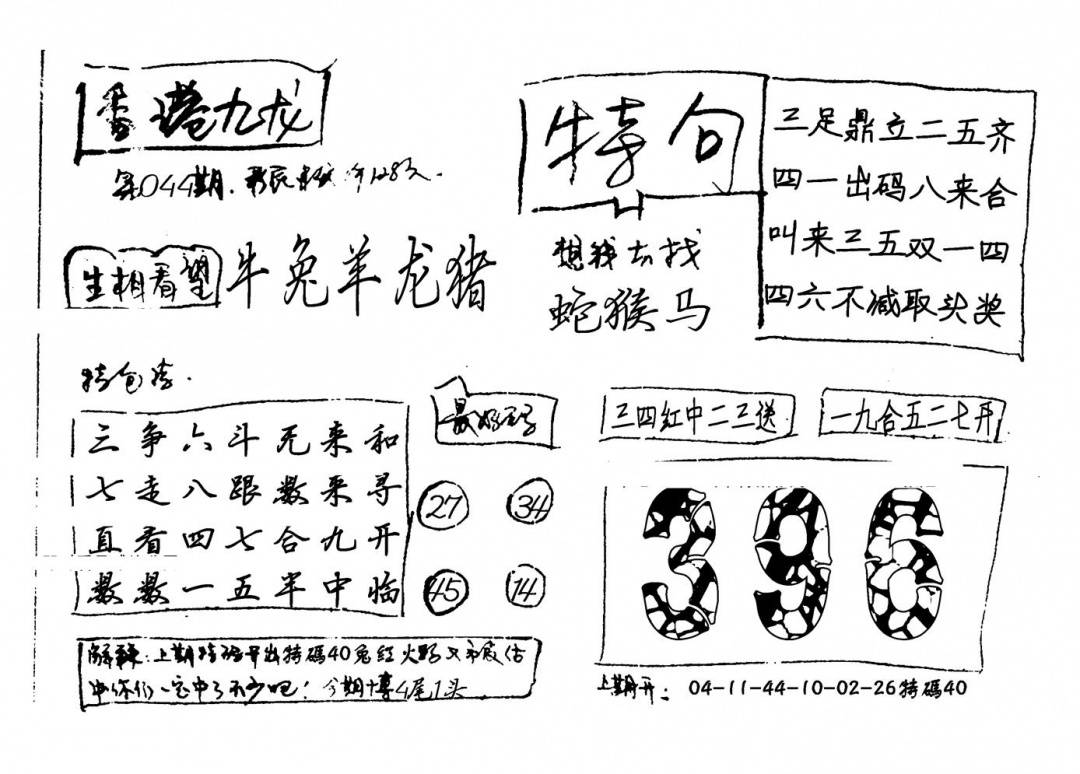 香港九龙
第044期
生相看望
牛兔羊龙猪
特句
想我去找
蛇猴马
三足鼎立二五齐
四一出码八来合
叫来三五双一四
四六不减取头奖
特包
三争六斗无来和
七走八跟数来寻
直看四七合九开
数数一五半中临
27 34
45 14
三四红中二三送
一九合五二七开
396
上期特码早出特碼40兔红火
你们一定中了不少吧！今期博4尾1头
上期开：04-11-44-10-02-26特碼40